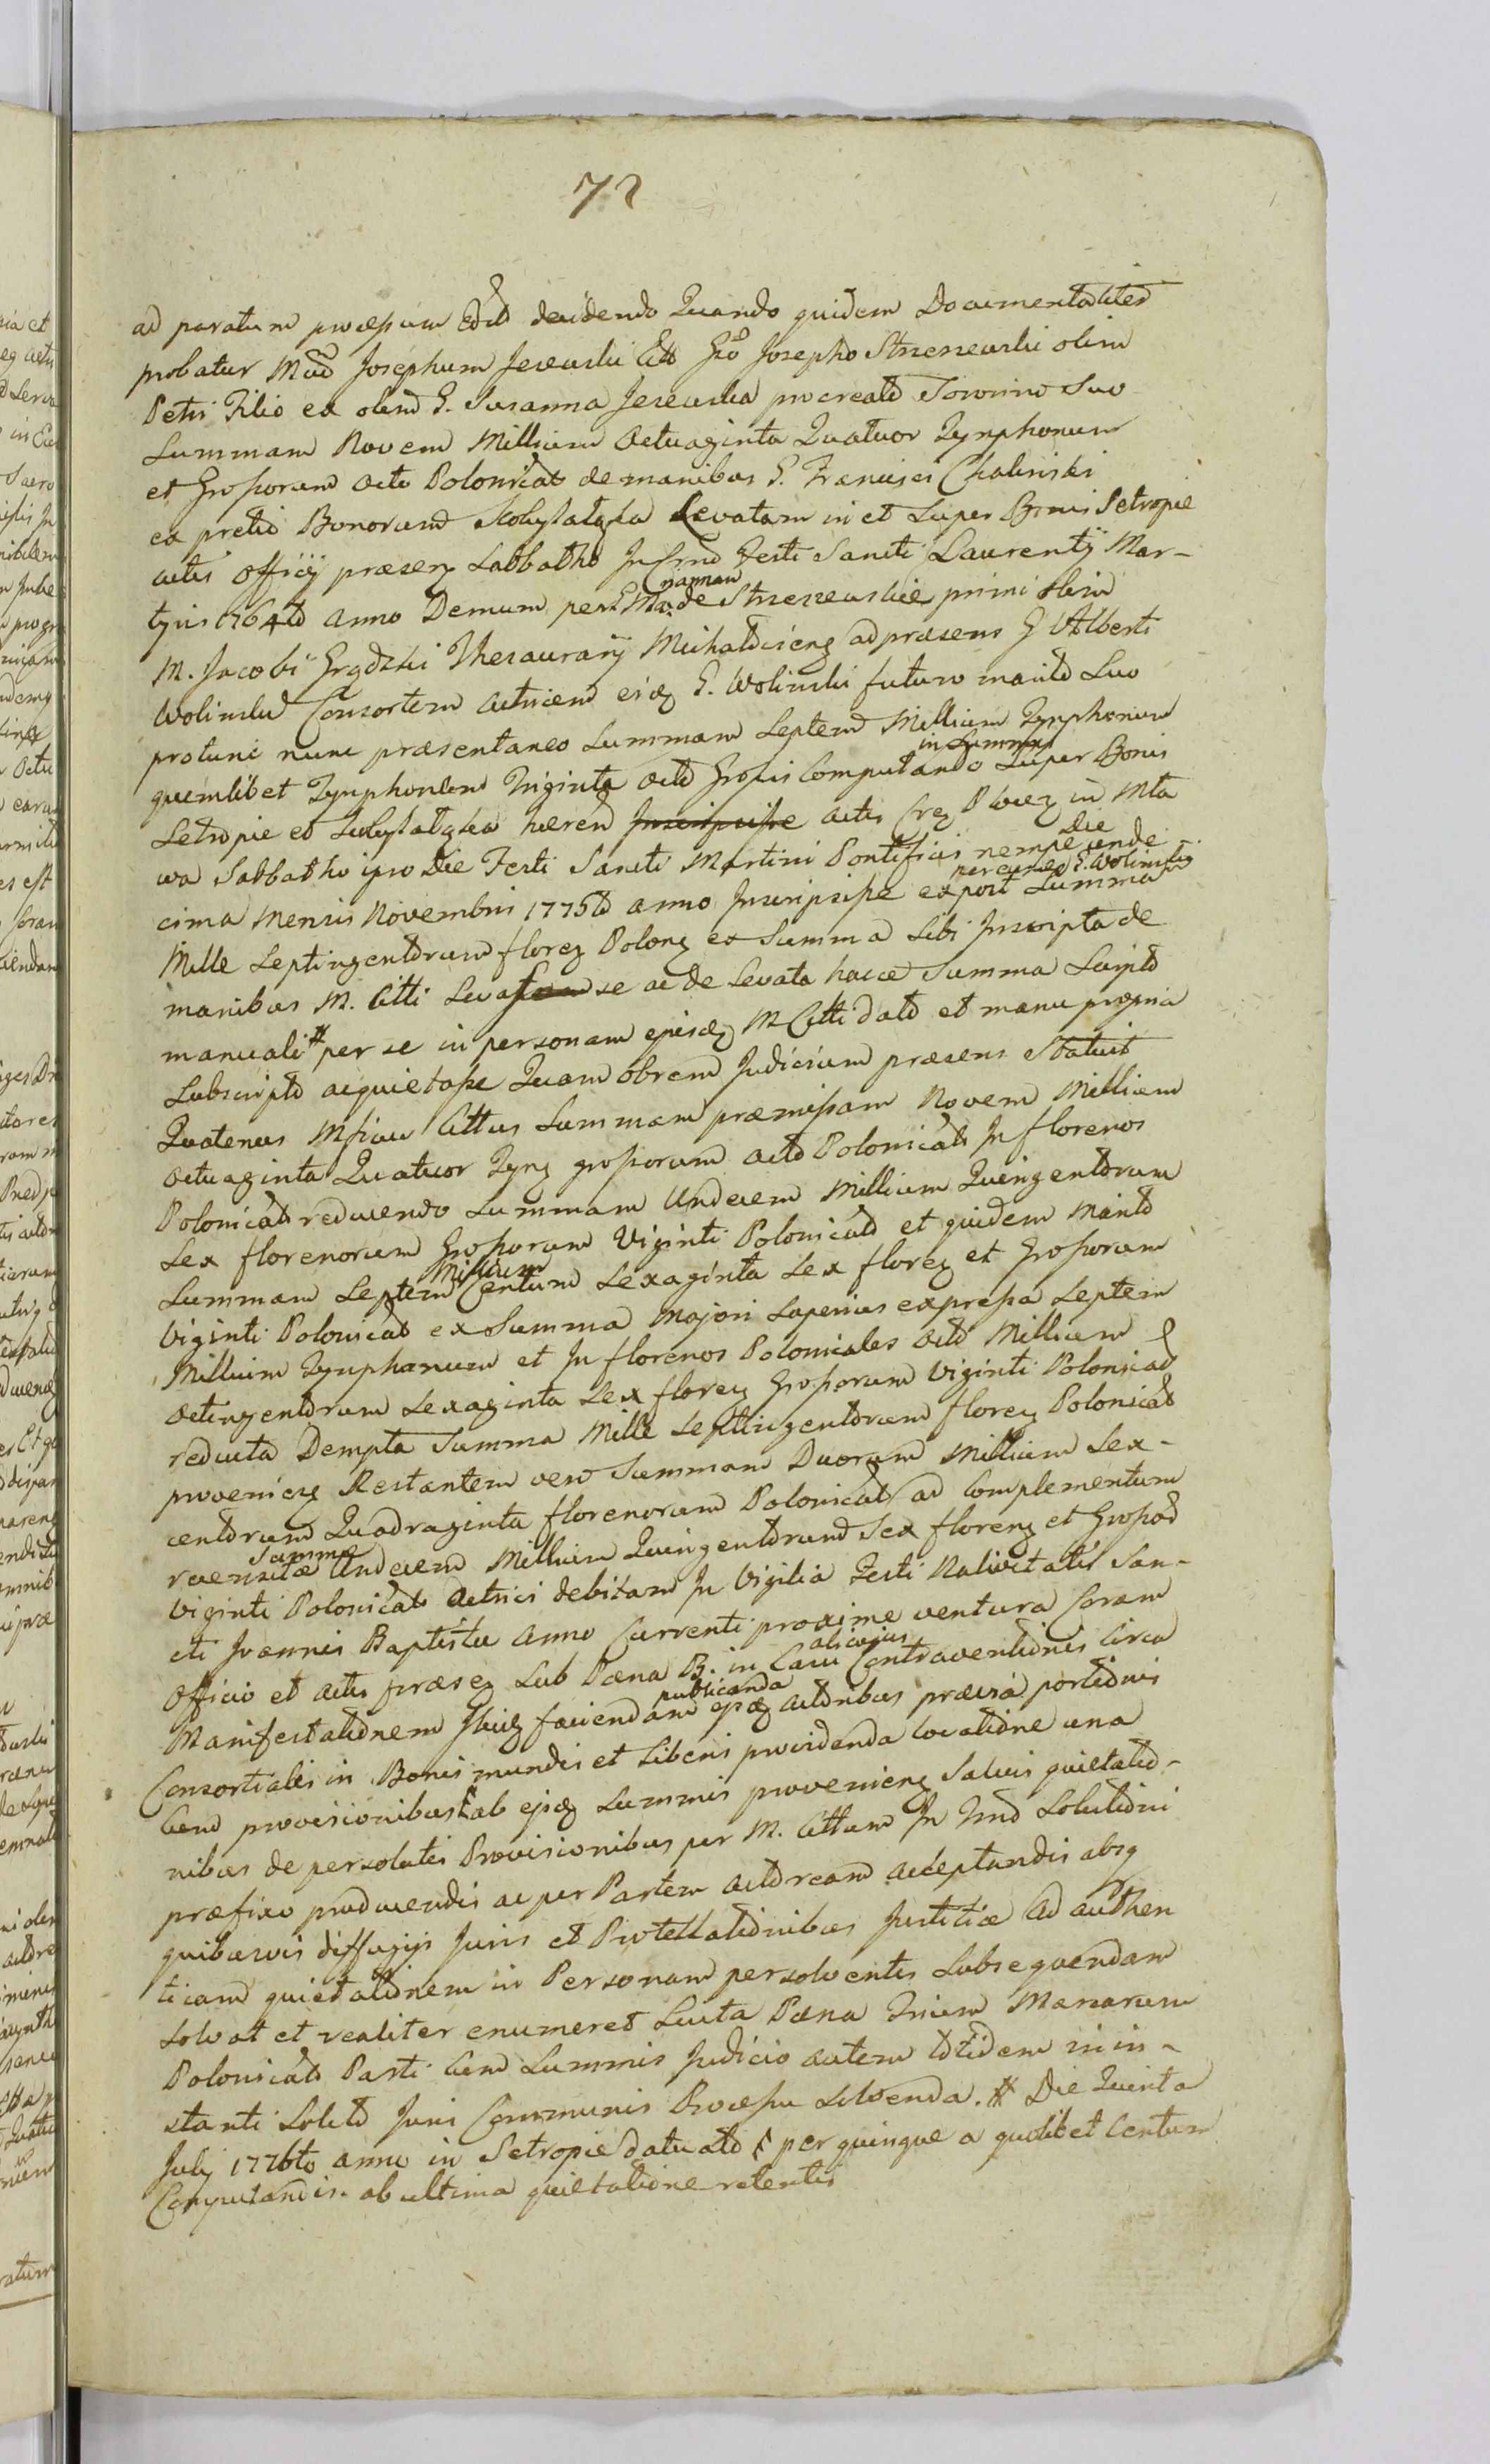 72
ad paratum processum deividendo Quando quidem Documentaliter
probatur Mcum Josephum Jezewski Cttt Gso Josepho Strzeszewski olim
Petri Filio ex olim G. Susanna Jezewska procreato Sororino Suo
Summam Novem Millium Octuaginta Quatuor Tynphonum
et Grossorum octo Polonicat de manibus G. Francisci Chalinski
ex pretio Bonorum Kobylatqka Levatam in et Super Bonis Setropie
actis officij præseng Sabbatho Infra Festi Sancti Laurentij Mar-
tyris 1764to anno Demum per G. Mariannam de Strzeszewskie primi olim
M. Jacobi Grqdzki Thesaurarij Michaloviens ad præsens G. Alberti
Wolinski Consortem actricem eidq G. Wolinski futuro marito Suo
protunc nunc præsentaneo Summam Septem Millium Tynphonum
quemlibet Tynphonem Triginta octo Grossis Computando in Summa Super Bonis
Setropie et Kobylatqka hæren Inscripsisse actis Crq Plocq in Mla
wa Sabbatho ipso Die Festi Sancti Martini Pontificis nempe Die unde
cima Mensis Novembris 1775to anno Inscripsisse expost per eundem G. Wolinski Summam
Mille Septingentorum floreq Polonq ex Summa Sibi Inscripta de
manibus M. Ctti Levasse ac de Levata hacce Summa Scripto
manuali # per se in personam ejusdq M Ctti dato et manu propria
Subscripto acquietasse Quam obrem Judicium præsens Statuit
Quatenus Mficus Cttus Summam præmissam Novem Millium
Octuaginta Quatuor Tynq grossorum octo Polonicat In florenos
Polonicat reducendo Summam Undecem Millium Quingentorum
Sex florenorum Grossorum Viginti Polonicat et quidem Marito
Summam Septem Millium Centum Sexaginta Sex floreq et Grossorum
Viginti Polonicat ex Summa Majori Superius expressa Septem
Millium Tynphonum et In florenos Polonicales octo Millium
octingentorum Sexaginta Sex floreq Grossorum Viginti Polonicat
reducta Dempta Summa Mille Septingentorum floreq Polonicat
provenieq Restantem vero Summam Duorum Millium Sex-
centorum Quadraginta florenorum Polonicat ad Complementum
recensitæ Summæ Undecem Millium Quingentorum Sex floreq et Grossor
Viginti Polonicat Actrici debitam In Vigilia Festi Nativitatis San-
cti Joannis Baptistæ Anno Currenti proxime ventura Coram
Officio et actis præseq Sub Pæna B. in Casu alicujus Contraventionis Circa
Manifestationem faciendam publicanda ejsq actoribus prævia portionis
Consortialis in Bonis mundis et Liberis providenda locatione una
Cum provisionibus ab ejsq Summis provenieq Salvis quietatio-
nibus de persolutis Provisionibus per M. Cttum In Tmo Solutioni
præfixo producendis ac per Partem actoream acceptandis absq
quibusvis diffugijs Juris et Protestationibus Justitiæ ad authen
ticam quietationem in Personam persolventis Subsequendam
Solvat et realiter enumeret Lucta Pæna Trium Marcarum
Polonicat Parti Cum Summis Judicio autem totidem in in-
stanti Soluto Juri Communis Processu Solvenda. # Die Quinta
July 1776to anno in Setropie datuato per quinque a quolibet Centum
Computandis. ab ultima quietatione retentis